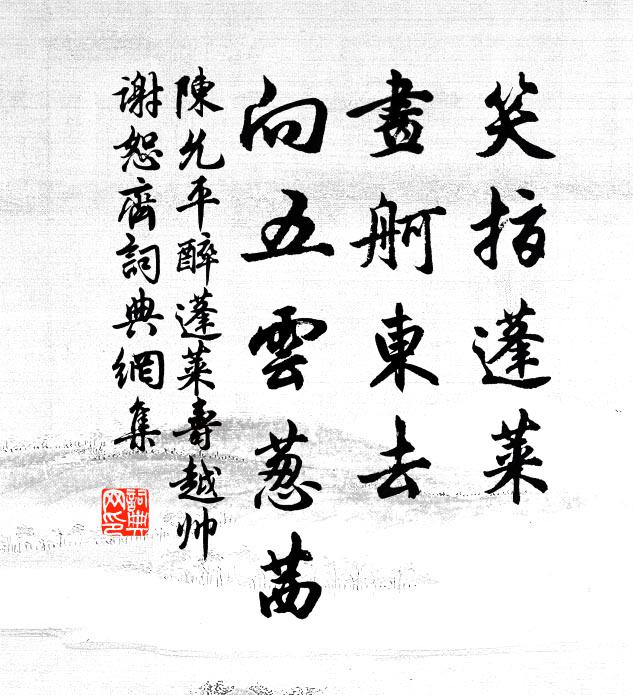 笑指蓬萊
畫舸東去
向五雲葱茜
陳允平醉蓬萊壽越帅
謝恕齋詞典網集
詞典
网印